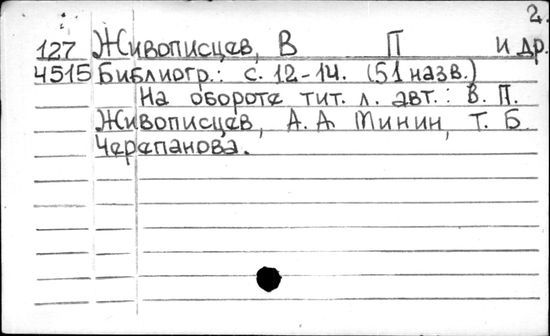 2.
127 Живописцев, В П и др.
4515 Библиогр.: с. 12-14. (51 назв.)
На обороте тит. л. авт.: В. П.
Живописцев, А. А. Минин, Т. Б.
Черепанова.